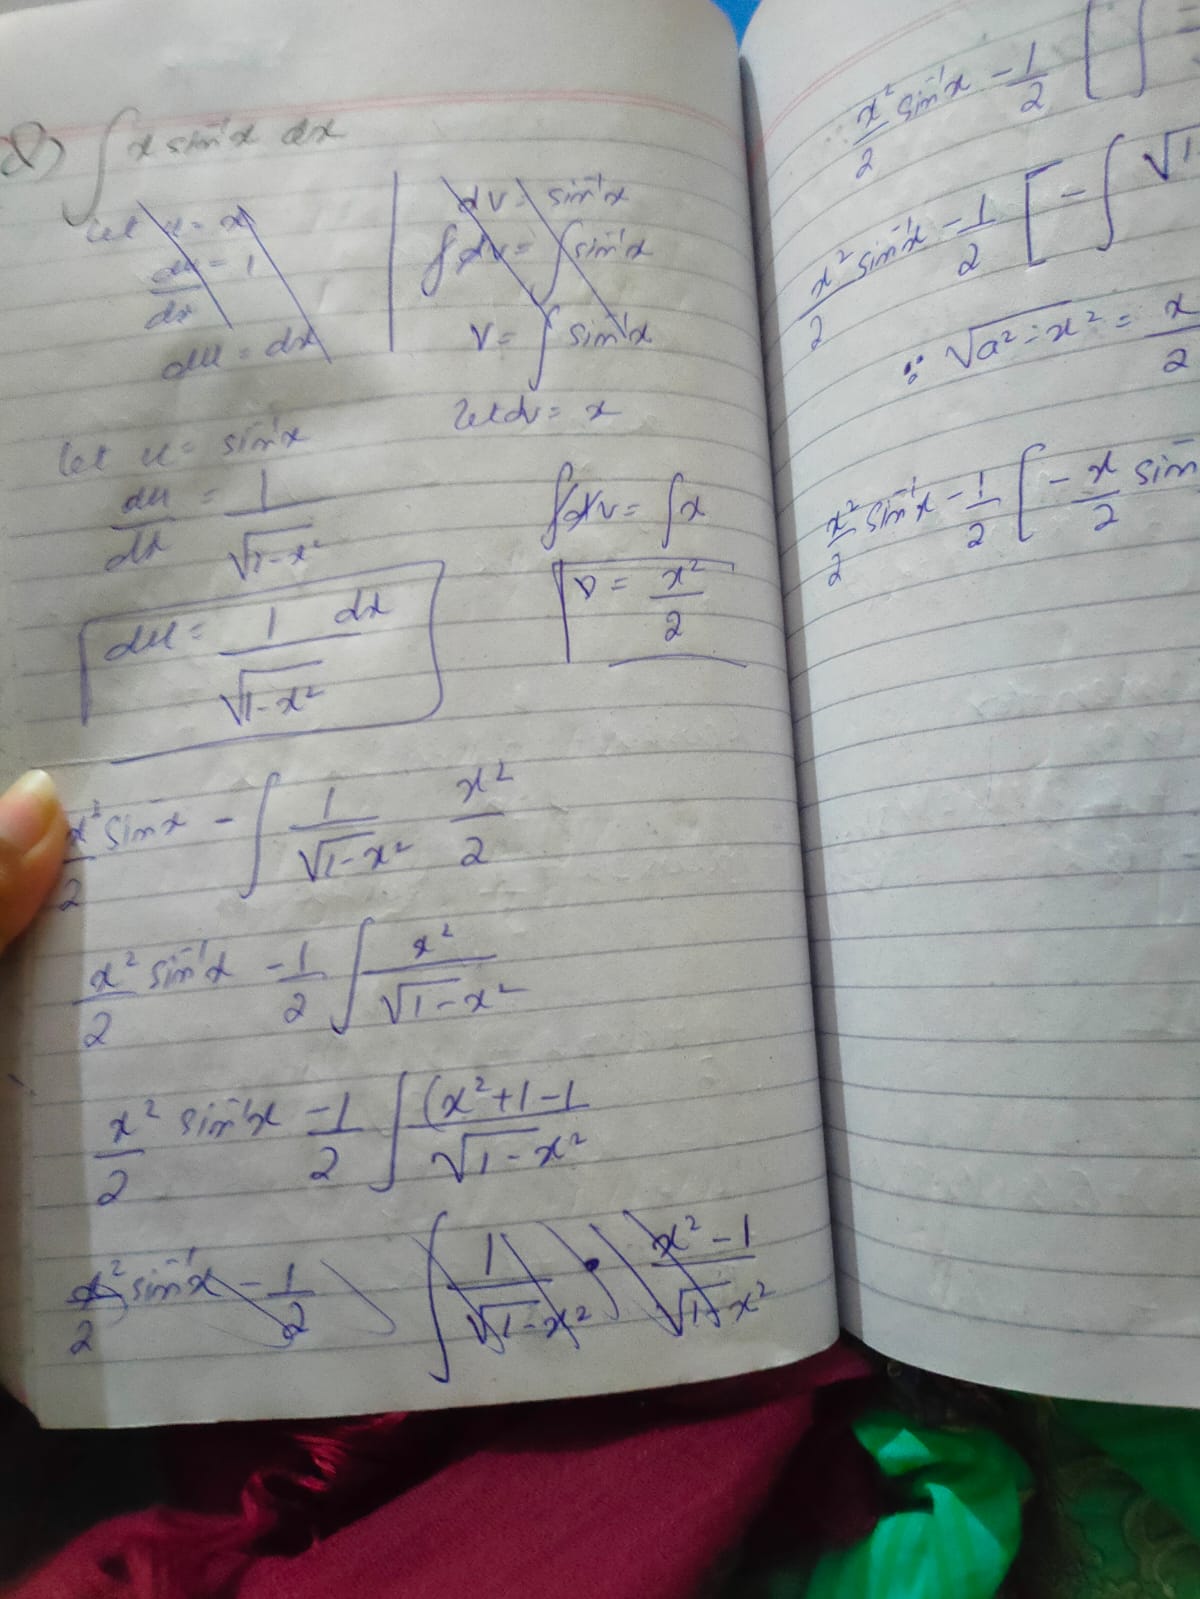 Q) ∫ x sin⁻¹x dx
let u = x
du/dx = 1
du = dx
dv = sin⁻¹x
∫dv = ∫sin⁻¹x
v = ∫ sin⁻¹x
let u = sin⁻¹x
du/dx = 1/√1-x²
du = 1/√1-x² dx
let dv = x
∫dv = ∫x
v = x²/2
x²/2 sin⁻x - ∫ 1/√1-x² x²/2
x²/2 sin⁻¹x - 1/2 ∫ x²/√1-x²
x²/2 sin⁻¹x - 1/2 ∫ (x²+1-1/√1-x²
x²/2 sin⁻¹x - 1/2 ∫ 1/√1-x² · x²-1/√1-x²
x²/2 sin⁻¹x - 1/2 [ ∫
x²/2 sin⁻¹x - 1/2 [ - ∫ √1-
∵ √a²-x² = x/2
x²/2 sin⁻¹x - 1/2 [ - x/2 sin⁻